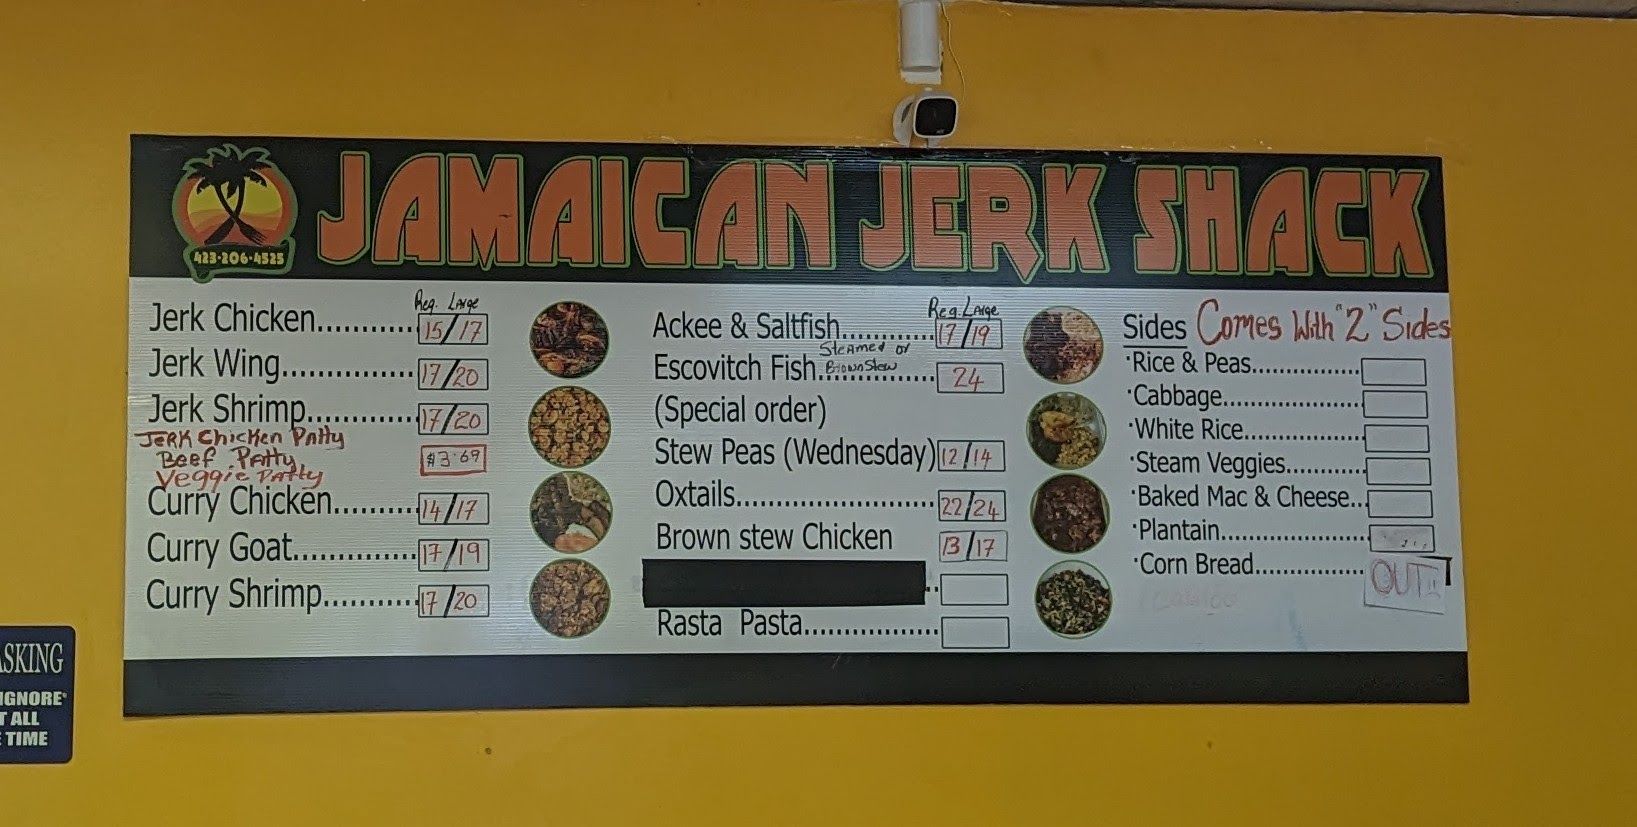 JAMAICAN JERK SHACK
423-206-4525
Reg. Large
Jerk Chicken............15/17
Jerk Wing...............17/20
Jerk Shrimp............17/20
Jerk Chicken Patty
Beef Patty $3.69
Veggie Patty
Curry Chicken.........14/17
Curry Goat.............17/19
Curry Shrimp..........17/20
Reg. Large
Ackee & Saltfish..........17/19
Steamed or
Escovitch Fish. Brown Stew ............ 24
(Special order)
Stew Peas (Wednesday) 12/14
Oxtails.....................22/24
Brown stew Chicken 13/17
Rasta Pasta.................
Sides Comes With "2" Sides
·Rice & Peas...............
·Cabbage....................
·White Rice.................
·Steam Veggies...........
·Baked Mac & Cheese...
·Plantain.....................
·Corn Bread................OUT!!
ASKING
IGNORE
ALL
TIME